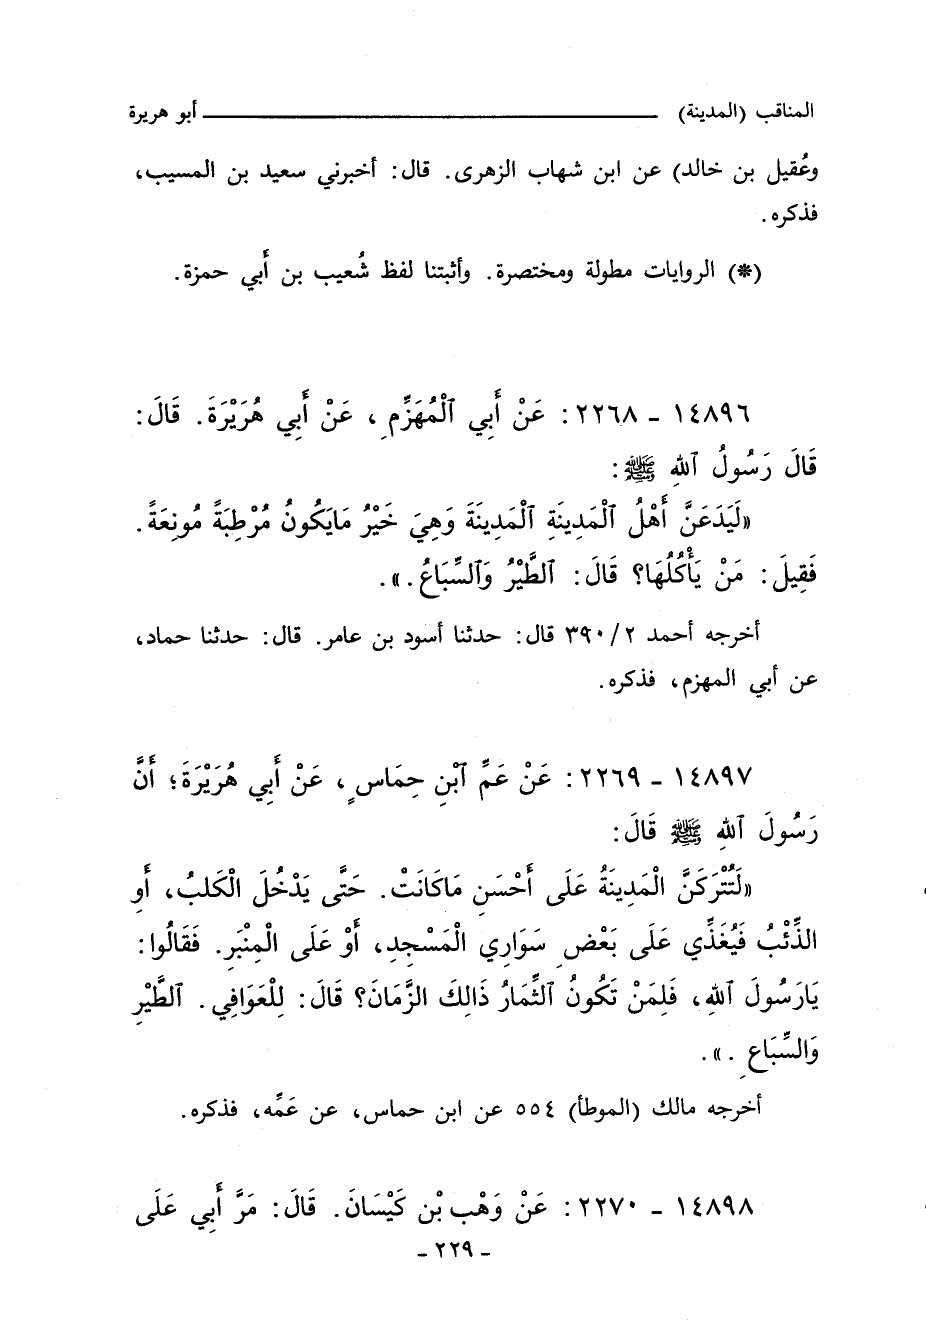 المناقب (المدينة) ـــــــ أبو هريرة
وعُقيل بن خالد) عن ابن شهاب الزهرى. قال: أخبرني سعيد بن المسيب،
فذكره.
(*) الروايات مطولة ومختصرة. وأثبتنا لفظ شُعيب بن أَبي حمزة.
١٤٨٩٦ - ٢٢٦٨: عَنْ أَبِي ٱلْمُهَزِّمِ، عَنْ أَبِي هُرَيْرَةَ. قَالَ:
قَالَ رَسُولُ ٱللهِ ﷺ:
«لَيَدَعَنَّ أَهْلُ ٱلْمَدِينَةِ ٱلْمَدِينَةَ وَهِيَ خَيْرُ مَايَكُونُ مُرْطِبَةً مُونِعَةً.
فَقِيلَ: مَنْ يَأْكُلُهَا؟ قَالَ: ٱلطَّيْرُ وَٱلسِّبَاعُ.».
أخرجه أحمد ٢/ ٣٩٠ قال: حدثنا أسود بن عامر. قال: حدثنا حماد،
عن أبي المهزم، فذكره.
١٤٨٩٧ - ٢٢٦٩: عَنْ عَمِّ ٱبْنِ حِمَاسٍ، عَنْ أَبِي هُرَيْرَةَ؛ أَنَّ
رَسُولَ ٱللهِ ﷺ قَالَ:
«لَتُتْرَكَنَّ الْمَدِينَةُ عَلَى أَحْسَنِ مَاكَانَتْ. حَتَّى يَدْخُلَ الْكَلبُ، أَوِ
الذِّئْبُ فَيُغَذِّي عَلَى بَعْضِ سَوَارِي الْمَسْجِدِ، أَوْ عَلَى الْمِنْبَرِ. فَقَالُوا:
يَارَسُولَ ٱللهِ، فَلِمَنْ تَكُونُ الثِّمَارُ ذَالِكَ الزَّمَانَ؟ قَالَ: لِلْعَوَافِي. ٱلطَّيْرِ
وَالسِّبَاعِ.».
أخرجه مالك (الموطأ) ٥٥٤ عن ابن حماس، عن عَمِّه، فذكره.
١٤٨٩٨ - ٢٢٧٠: عَنْ وَهْبِ بْنِ كَيْسَانَ. قَالَ: مَرَّ أَبِي عَلَى
- ٢٢٩ -